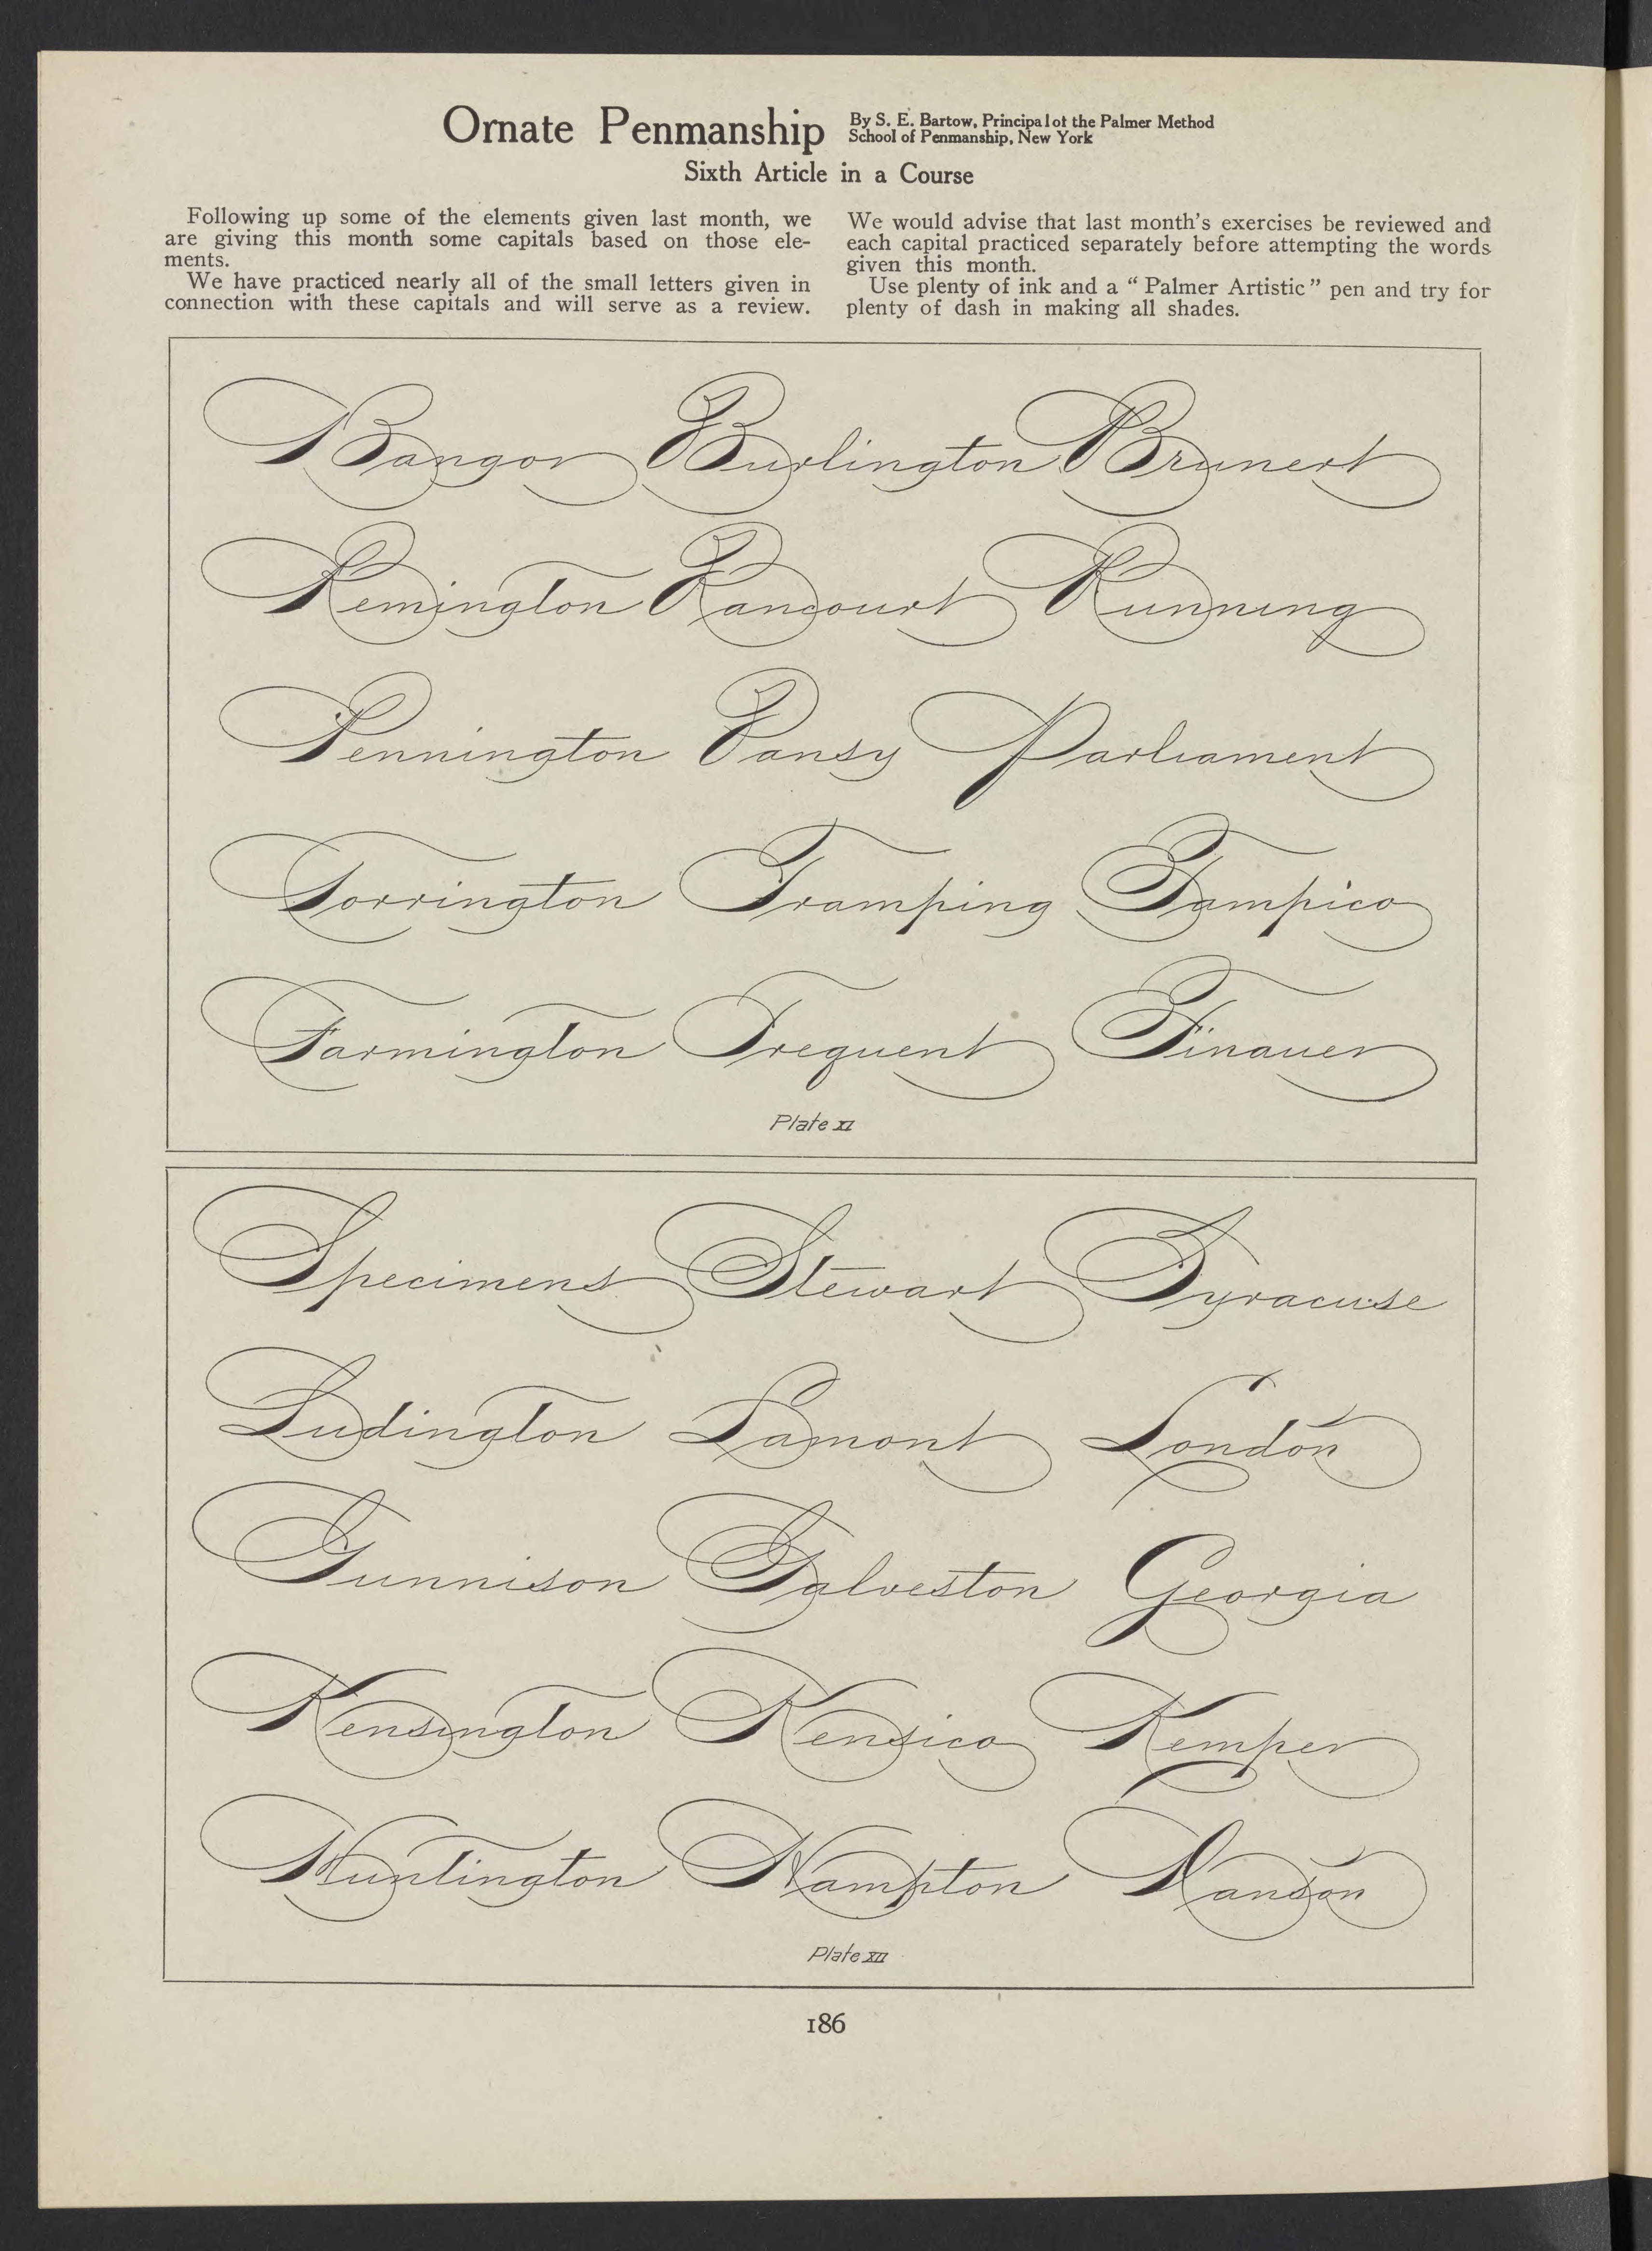 Ornate Penmanship
By S. E. Bartow, Principal of the Palmer Method
School of Penmanship, New York
Sixth Article in a Course
Following up some of the elements given last month, we
are giving this month some capitals based on those ele-
ments.
We have practiced nearly all of the small letters given in
connection with these capitals and will serve as a review.
We would advise that last month's exercises be reviewed and
each capital practiced separately before attempting the words
given this month.
Use plenty of ink and a "Palmer Artistic" pen and try for
plenty of dash in making all shades.
Bangor Burlington Brunert
Remington Rancourt Running
Pennington Pansy Parliament
Torrington Tramping Tampico
Farmington Frequent Finauer
Plate XI
Specimens Stewart Syracuse
Ludington Lamont London
Gunnison Galveston Georgia
Kensington Kensico Kemper
Huntington Hampton Hanson
Plate XII
186